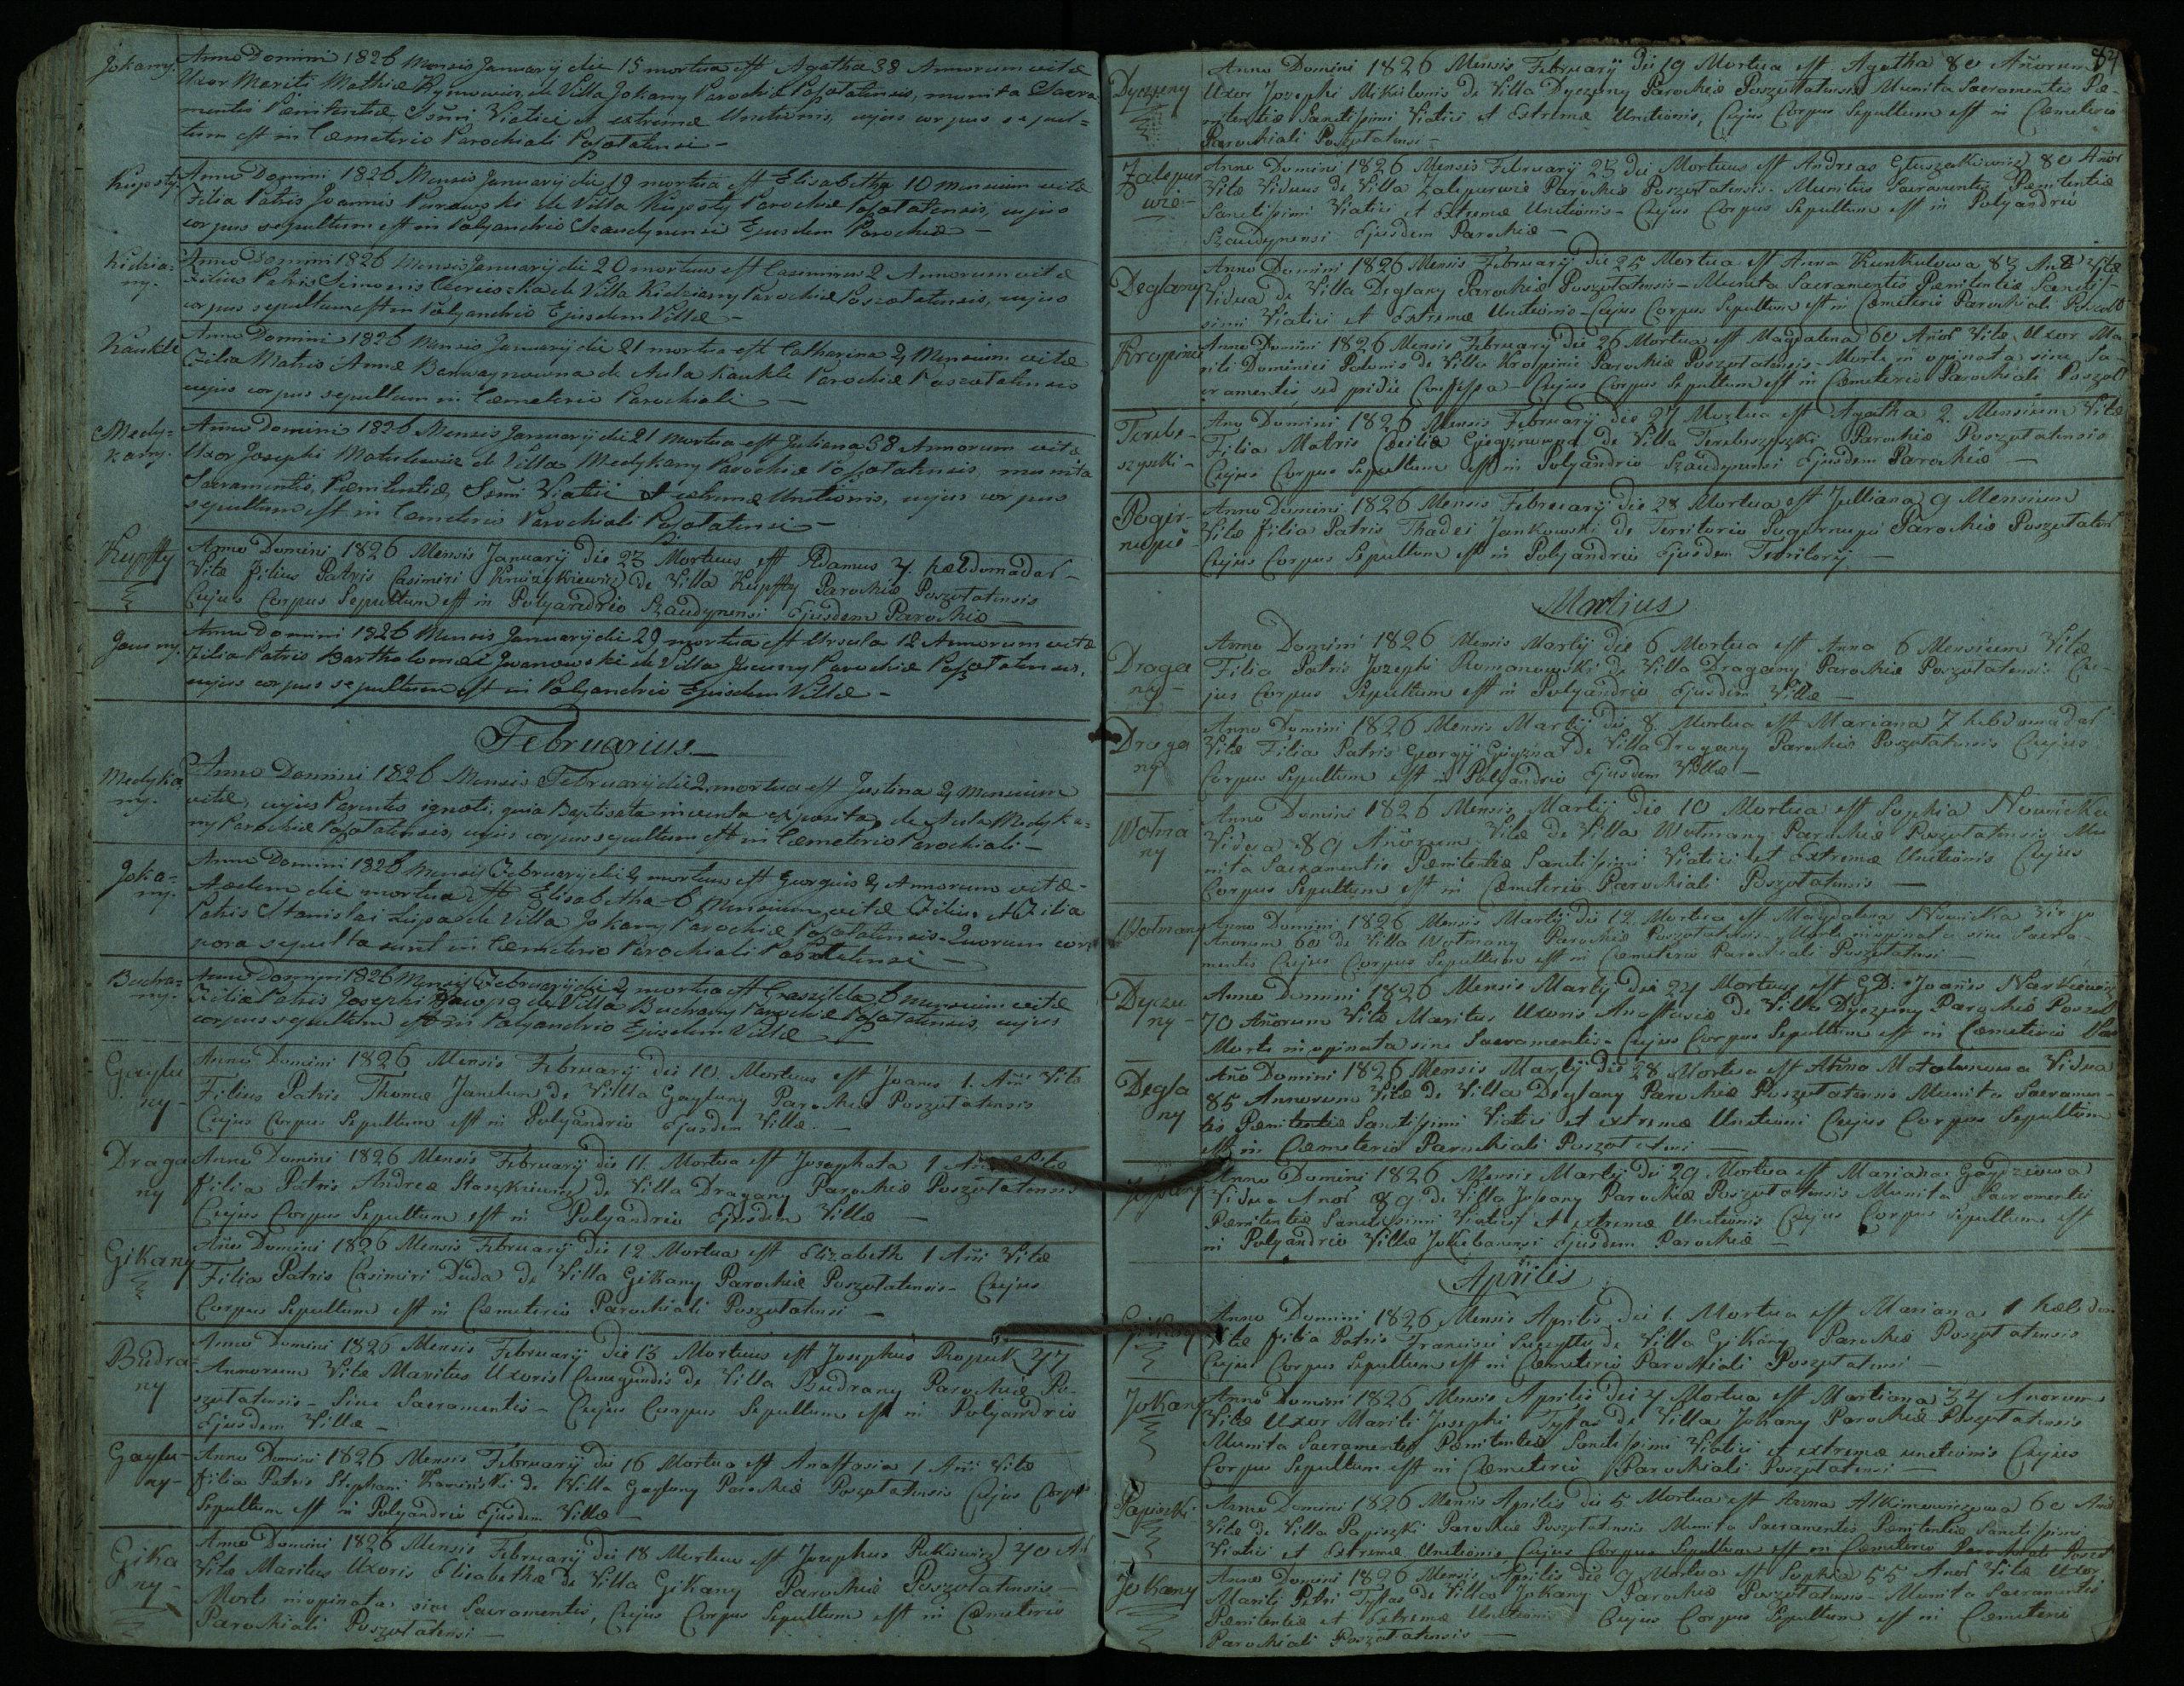 Jokany.
Anno Domini 1826 Mensis Januarij die 15 mortua est Agatha 38 Annorum vitæ
Uxor Mariti Mathiæ de Villa Jokany Parochiæ Poszołatensis, munita Sacra-
mentis Pænitentiæ Ssmi Viatici et extremæ Unctionis, cujus corpus sepul=
tum est in Cæmeterio Parochiali Poszołatensi –
Anno Domini 1826 Mensis Januarij die 19 mortua est Elisabetha 10 Mensium vitæ
Filia Patris Joannis Purawski de Villa Parochiæ Poszołatensis, cujus
corpus sepultum est in Polyandrio Szaudynensi Ejusdem Parochiæ –
Kidzia=
ny.
Anno Domini 1826 Mensis Januarij die 20 mortuus est Casimirus 2 Annorum vitæ
Filius Patris Simonis de Villa Kidziany Parochiæ Poszołatensis, cujus
corpus sepultum est in Polyandrio Ejusdem Villæ –
Kaukle
Anno Domini 1826 Mensis Januarij die 21 mortua est Catharina 4 Mensium vitæ
Filia Matris Annæ de Aula Kaukle Parochiæ Poszołatensis
cujus corpus sepultum in Cæmeterio Parochiali –
Medy=
kany.
Anno Domini 1826 Mensis Januarij die 21 mortua est Juliana 38 Annorum vitæ
Uxor Josephi Matulewicz de Villa Medykany Parochiæ Poszołatensis munita
Sacramentis, Pænitentiæ, Ssmi Viatici et extremæ Unctionis, cujus corpus
sepultum est in Cæmeterio Parochiali Poszołatensi –
Kupsty
Anno Domini 1826 Mensis Januarij die 23 Mortuus est Adamus 4 hæbdomadar –
Vitæ filius Patris Casimiri de Villa Kupsty Parochiæ Poszołatensis
Cujus Corpus Sepultum est in Polyandrio Szaudynensi Ejusdem Parochiæ –
Anno Domini 1826 Mensis Januarij die 29 mortua est Ursula 12 Annorum vitæ
Filia Patris Bartholomæi Iwanowski de Villa Parochiæ Poszołatensis,
cujus corpus sepultum est in Polyandrio Ejusdem Villæ –
Februarius
Medyka
ny.
Anno Domini 1826 Mensis Februarij die 2 mortua est Justina 4 Mensium
vitæ, cujus Parentes ignoti, quia Baptisata inventa exposita, de Aula Medyka=
ny Parochiæ Poszołatensis, cujus corpus sepultum est in Cæmeterio Parochiali –
Joka=
ny.
Anno Domini 1826 Mensis Februarij die 4 mortuus est Georgius 4 Annorum vitæ –
Eadem die mortua est Elisabetha 6 Mensium vitæ Filius et Filia
Patris Stanislai de Villa Jokany Parochiæ Poszołatensis – Quorum cor
pora sepulta sunt in Cæmeterio Parochiali Poszołatensi –
Buchra=
ny.
Anno Domini 1826 Mensis Februarij die 4 mortua est Graszylda 6 Mensium vitæ
Filia Patris Josephi de Villa Parochiæ Poszołatensis, cujus
corpus sepultum est in Polyandrio Ejusdem Villæ –
Gaylu
ny –
Anno Domini 1826 Mensis Februarij die 10. Mortuus est Joanes 1. Ani Vitæ
Filius Patris Thomæ Janelun de Villa Gayluny Parochiæ Poszołatensis
Cujus Corpus Sepultum est in Polyandrio Ejusdem Villæ. –
Draga
ny
Anno Domini 1826 Mensis Februarij die 11. Mortua est Josephata 1 Ani Vitæ
filia Patris Andreæ Staszkiewicz de Villa Dragany Parochiæ Poszołatensis
Cujus Corpus Sepultum est in Polyandrio Ejusdem Villæ –
Gikany
Ano Domini 1826 Mensis Februarij die 12 Mortua est Elizabeth 1 Ani Vitæ
Filia Patris Casimiri Duda de Villa Gikany Parochiæ Poszołatensis – Cujus
Corpus Sepultum est in Cæmeterio Parochiali Poszołatensi –
Budra=
ny
Anno Domini 1826 Mensis Februarij die 13 Mortuus est Josephus 47
Annorum Vitæ Maritus Uxoris Cunegundis de Villa Budrany Parochiæ Po-
szołatensis – Sine Sacramentis – Cujus Corpus Sepultum est in Polyandrio
Ejusdem Villæ –
Gaylu-
ny –
Anno Domini 1826 Mensis Februarij die 16 Mortua est Anastasia 1 Ani Vitæ
filia Patris Stephani Kaminski de Villa Gayluny Parochiæ Poszołatensis Cujus Corpus
Sepultum est in Polyandrio Ejusdem Villæ –
Gika
ny –
Anno Domini 1826 Mensis Februarij die 18 Mortuus est Josephus 40
Vitæ Maritus Uxoris Elisabethæ de Villa Gikany Parochiæ Poszołatensis –
Morte inopinata sine Sacramentis, Cujus Corpus Sepultum est in Cæmeterio
Parochiali Poszołatensi –
84
Dyczuny
Anno Domini 1826 Mensis Februarij die 19 Mortua est Agatha 80 Añorum
Uxor Jozephi de Villa Dyczuny Parochiæ Poszołatensis Munita Sacramentis Pæ-
nitentiæ Sanctissimi Viatici et Extremæ Unctionis, Cujus Corpus Sepultum est in Cæmeterio
Parochiali Poszołatensi
Anno Domini 1826 Mensis Februarij 23 die Mortuus est Andreas 80 Añor
Vitæ Viduus de Villa Parochiæ Poszołatensis – Munitus Sacramentis Pænitentiæ
Sanctissimi Viatici et Extremæ Unctionis – Cujus Corpus Sepultum est in Polyandrio
Szaudynensi Ejusdem Parochiæ –
Deglany
Anno Domini 1826 Mensis Februarij die 25 Mortua est Anna Kunkulowa 83 Vitæ
Vidua de Villa Deglany Parochiæ Poszołatensis – Munita Sacramentis Pænitentiæ Sanctis-
simi Viatici et Extremæ Unctionis – Cujus Corpus Sepultum est in Cæmeterio Parochiali
Kropini
Anno Domini 1826 Mensis Februarij die 26 Mortua est Magdalena 60 Añor Vitæ Uxor Ma
riti Dominici de Villa Kropini Parochiæ Poszołatensis – Morte inopinata sine Sa-
cramentis, sed pridie Confessa – Cujus Corpus Sepultum est in Cæmeterio Parochiali
Ano Domini 1826 Mensis Februarij die 27 Mortua est Agatha 2. Mensium Vitæ
Filia Matris Cæciliæ de Villa Parochiæ Poszołatensis
Cujus Corpus Sepultum est in Polyandrio Szaudynensi Ejusdem Parochiæ –
Pogir-
nupie
Anno Domini 1826 Mensis Februarij die 28 Mortua est Julliana 9 Mensium
Vitæ filia Patris Thadei Jankowski de Territorio Parochiæ
Cujus Corpus Sepultum est in Polyandrio Ejusdem Territorij –
Martius
Draga
ny –
Anno Domini 1826 Mensis Martij die 6 Mortua est Anna 6 Mensium Vitæ
Filia Patris Jozephi Romanowski de Villa Dragany Parochiæ Poszołatensis Cu-
jus Corpus Sepultum est in Polyandrio Ejusdem Villæ –
Draga
ny
Anno Domini 1826 Mensis Martij die 8. Mortua est Mariana 7 hebdomadar
Vitæ Filia Patris Georgij de Villa Dragany Parochiæ Poszołatensis Cujus
Corpus Sepultum est in Polyandrio Ejusdem Villæ –
Wotma
ny
Anno Domini 1826 Mensis Martij die 10 Mortua est Sophia Nowicka
Vidua 89 Añorum Vitæ de Villa Wotmany Parochiæ Poszołatensis Mu
nita Sacramentis Pænitentiæ Sanctissimi Viatici et Extremæ Unctionis Cujus
Corpus Sepultum est in Cæmeterio Parochiali Poszołatensis –
Wotmany
Anno Domini 1826 Mensis Martij die 12. Mortua est Magdalena Nowicka Virgo
Anorum 60 de Villa Wotmany Parochiæ Poszołatensis – Morte inopinata sine Sacra-
mentis Cujus Corpus Sepultum est in Cæmeterio Parochiali Poszołatensi –
Dyczu
ny –
Anno Domini 1826 Mensis Martij die 24 Mortuus est GD. Joanes Narkiewicz
70 Añorum Vitæ Maritus Uxoris Anastasiæ de Villa Dyczuny Parochiæ
Morte inopinata sine Sacramentis – Cujus Corpus Sepultum est in Cæmeterio
Degla
ny
Año Domini 1826 Mensis Martij die 28 Mortua est Anna Vidua
85 Annorum Vitæ de Villa Deglany Parochiæ Poszołatensis Munita Sacramen-
tis Pænitentiæ Sanctissimi Viatici et extremæ Unctioni Cujus Corpus Sepultum
est in Cæmeterio Parochiali Poszołatensi –
Anno Domini 1826 Mensis Martij die 29 Mortua est Mariana
Vidua Anor 89 de Villa Parochiæ Poszołatensis Munita Sacramentis
Pænitentiæ Sanctissimi Viatici et extremæ Unctionis Cujus Corpus Sepultum est
in Polyandrio Villæ Ejusdem Parochiæ –
Aprilis
Gikany
Anno Domini 1826 Mensis Aprilis die 1. Mortua est Mariana 1 hæbdom
Vitæ filia Patris Francisci de Villa Gikany Parochiæ Poszołatensis
Cujus Corpus Sepultum est in Cæmeterio Parochiali Poszołatensi –
Jokany
Anno Domini 1826 Mensis Aprilis die 4 Mortua est Martiana 34 Anorum
Vitæ Uxor Mariti Josephi de Villa Jokany Parochiæ Poszołatensis
Munita Sacramentis Pænitentiæ Sanctissimi Viatici et extremæ unctionis Cujus
Corpus Sepultum est in Cæmeterio Parochiali Poszołatensi –
Papiszki
Anno Domini 1826 Mensis Aprilis die 5 Mortua est Anna Alkimowiczowa 60
Vitæ de Villa Papiszki Parochiæ Poszołatensis Munita Sacramentis Pænitentiæ Sanctissimi
Viatici et Extremæ Unctionis Cujus Corpus Sepultum est in Cæmeterio Parochiali
Jokany
Anno Domini 1826 Mensis Aprilis die 9 Mortua est Sophia 55 Anor Vitæ Uxor
Mariti Petri de Villa Jokany Parochiæ Poszołatensis – Munita Sacramentis
Pænitentiæ et Extremæ Unctionis Cujus Corpus Sepultum est in Cæmeterio
Parochiali Poszołatensis –